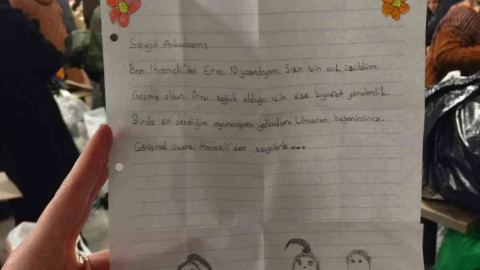 Sevgili Arkadaşım;
Ben Kocaeli'den Esra, 10 yaşındayım. Sizin için çok üzüldüm.
Geçmiş olsun. Orası soğuk olduğu için size kıyafet gönderdik.
Birde en sevdiğim oyuncağımı yolladım. Umarım beğenirsiniz.
Görüşmek üzere. Kocaeli'den sevgilerle...